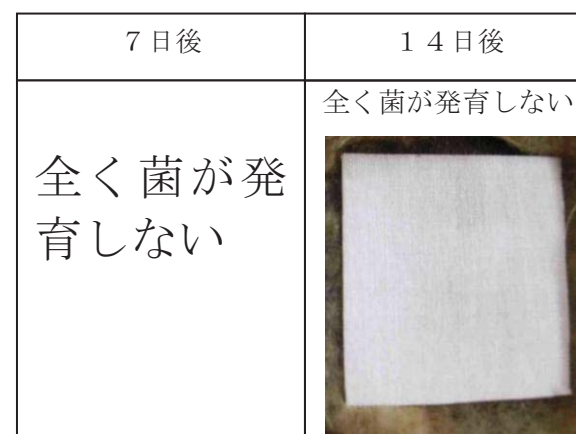 ７日後
１４日後
全く菌が発
育しない
全く菌が発育しない